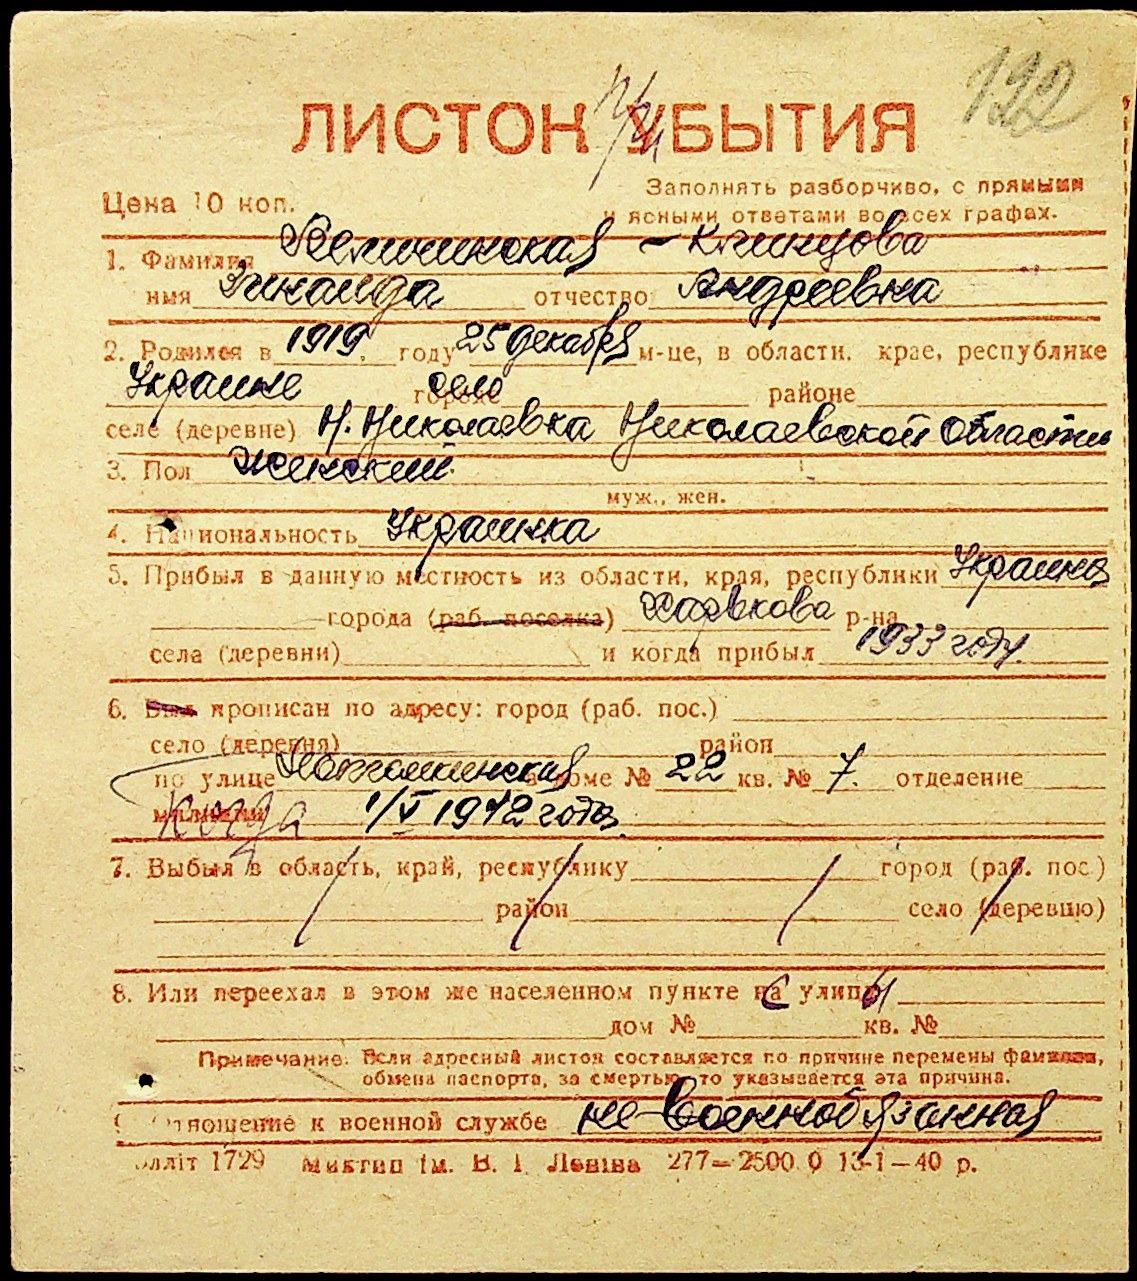 122
ЛИСТОК УБЫТИЯ
Цена 10 коп.
Заполнять разборчиво, с прямыми
и ясными ответами во всех графах.
1. Фамилия Хелминская – Клинцова
имя Зинаида отчество Андреевна
2. Родился в 1919. году 25 декабря м-це, в области, крае, республике
Украине городе село районе
селе (деревне) Н. Николаевка Николаевской области
3. Пол женский
муж., жен.
4. Национальность Украинка
5. Прибыл в данную местность из области, края, республики Украина
города (раб. поселка) Харькова р-на
села (деревни) и когда прибыл 1933 году.
6. Был прописан по адресу: город (раб. пос.)
село (деревня) район
по улице Потемкинская в доме № 22 кв. № 7. отделение
милиции когда 1/V 1942 года.
7. Выбыл в область, край, республику город (раб. пос.)
район село (деревню)
8. Или переехал в этом же населенном пункте на улицы
дом № кв. №
Примечание: Если адресный листок составляется по причине перемены фамилии,
обмена паспорта, за смертью, то указывается эта причина.
Отношение к военной службе не военнообязанная
1729 ім. В. І. Леніна 277—2500 0 13-1—40 р.